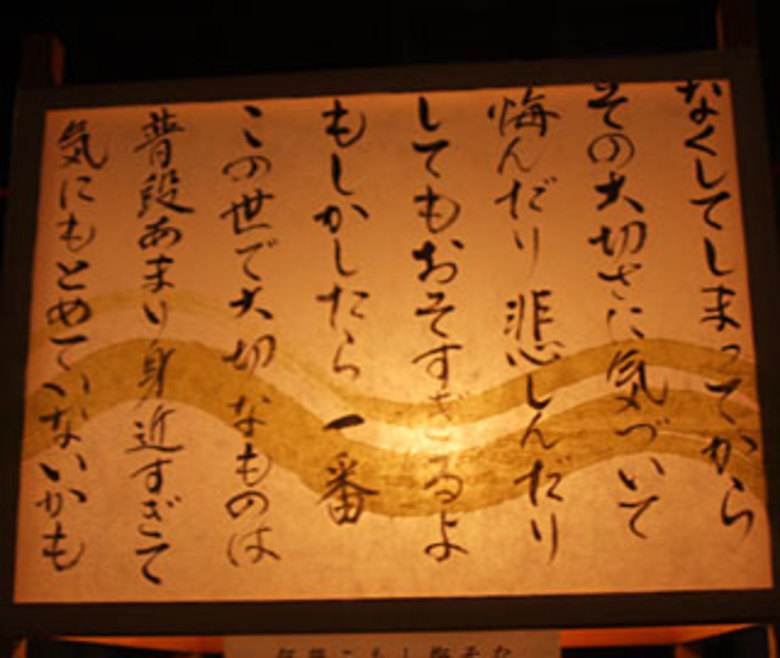 なくしてしまってから
その大切さに気づいて
悔んだり悲しんだり
してもおそすぎるよ
もしかしたら一番
この世で大切なものは
普段あまり身近すぎて
気にもとめていないかも